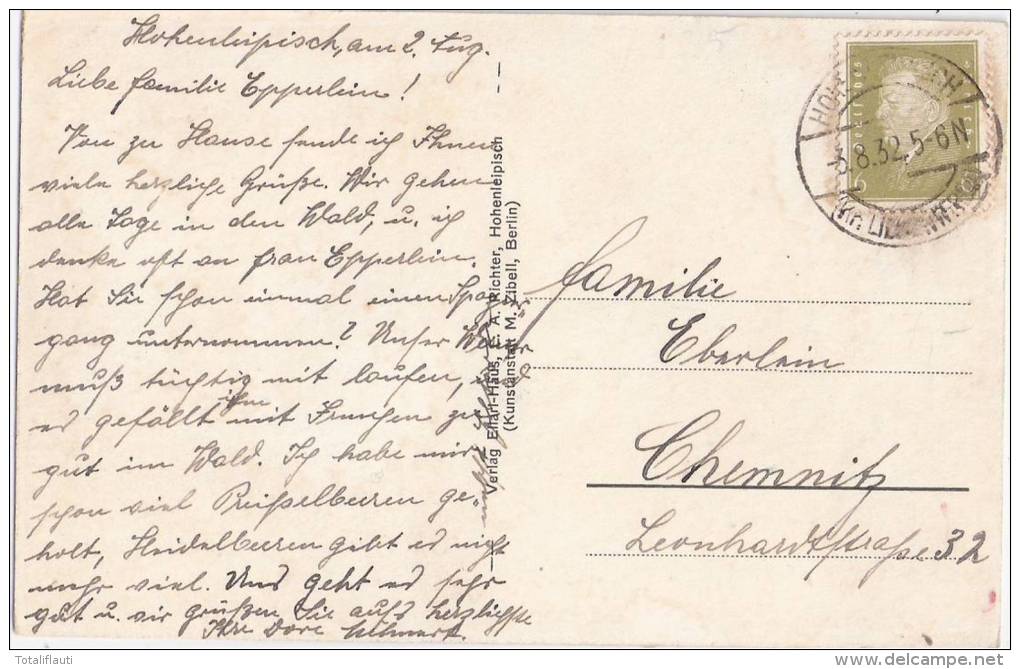 Hohenleipisch, am 2. Aug.
Liebe Familie Epperlein!
Von zu Hause sende ich Ihnen
viele herzliche Grüße. Wir gehen
alle Tage in den Wald, u. ich
denke oft an Frau Epperlein.
Hat Sie schon einmal einen Spazier
gang unternommen? Unser
muß tüchtig mit laufen,
es gefällt ihm mit zu
gut im Wald. Ich habe mir
schon viel Preißelbeeren ge-
holt, Heidelbeeren gibt es nicht
mehr viel. Uns geht es sehr
gut u. wir grüßen Sie aufs herzlichste
Ihre Dore
Verlag Eilart-Haus, E. A. Richter, Hohenleipisch
(Kunstanstalt M. Zibell, Berlin)
Familie
Eberlein
Chemnitz
Leonhardtstraße 32
8.32.5-6N
6
Totaliflauti
delcampe.net